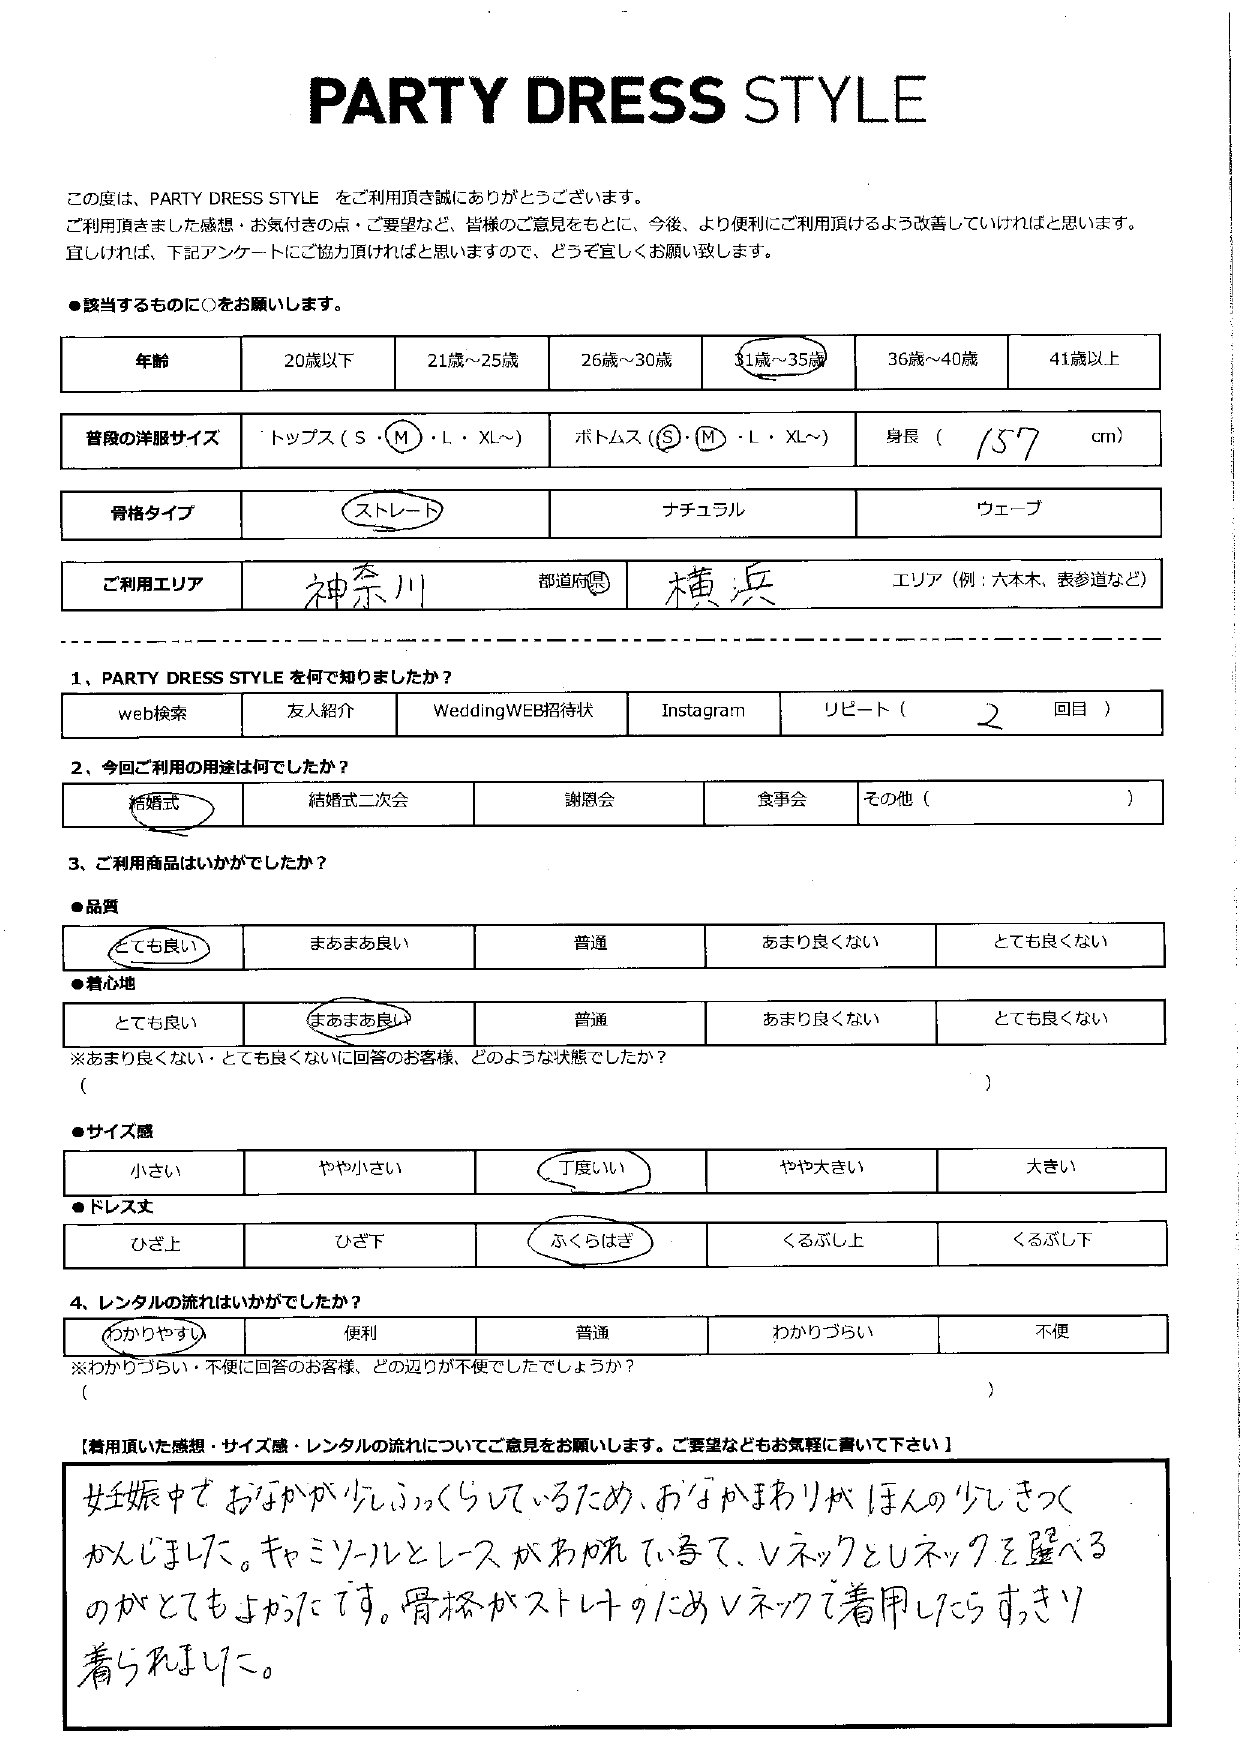 PARTY DRESS STYLE
この度は、PARTY DRESS STYLE をご利用頂き誠にありがとうございます。
ご利用頂きました感想・お気付きの点・ご要望など、皆様のご意見をもとに、今後、より便利にご利用頂けるよう改善していければと思います。
宜しければ、下記アンケートにご協力頂ければと思いますので、どうぞ宜しくお願い致します。
●該当するものに○をお願いします。
年齢 20歳以下 21歳～25歳 26歳～30歳 31歳～35歳 36歳～40歳 41歳以上
普段の洋服サイズ トップス ( S ・ M ・ L ・ XL～) ボトムス (S ・ M ・ L ・ XL～) 身長 ( 157 cm)
骨格タイプ ストレート ナチュラル ウェーブ
ご利用エリア 神奈川 都道府県 横浜 エリア（例：六本木、表参道など）
1、PARTY DRESS STYLE を何で知りましたか？
web検索 友人紹介 WeddingWEB招待状 Instagram リピート（ 2 回目 ）
2、今回ご利用の用途は何でしたか？
結婚式 結婚式二次会 謝恩会 食事会 その他（ ）
3、ご利用商品はいかがでしたか？
●品質
とても良い まあまあ良い 普通 あまり良くない とても良くない
●着心地
とても良い まあまあ良い 普通 あまり良くない とても良くない
※あまり良くない・とても良くないに回答のお客様、どのような状態でしたか？
( )
●サイズ感
小さい やや小さい 丁度いい やや大きい 大きい
●ドレス丈
ひざ上 ひざ下 ふくらはぎ くるぶし上 くるぶし下
4、レンタルの流れはいかがでしたか？
わかりやすい 便利 普通 わかりづらい 不便
※わかりづらい・不便に回答のお客様、どの辺りが不便でしたでしょうか？
( )
【着用頂いた感想・サイズ感・レンタルの流れについてご意見をお願いします。ご要望などもお気軽に書いて下さい】
妊娠中でおなかが少しふっくらしているため、おなかまわりがほんの少しきつく
かんじました。キャミソールとレースがわかれているので、VネックとUネックを選べる
のがとてもよかったです。骨格がストレートのためVネックで着用したらすっきり
着られました。